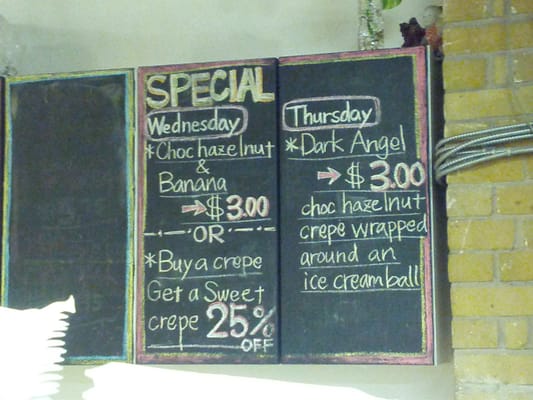 SPECIAL
Wednesday
*Choc hazelnut
&
Banana
→$3.00
-·-OR-·-
*Buy a crepe
Get a Sweet
crepe 25%
OFF
Thursday
*Dark Angel
→$3.00
choc hazelnut
crepe wrapped
around an
ice cream ball